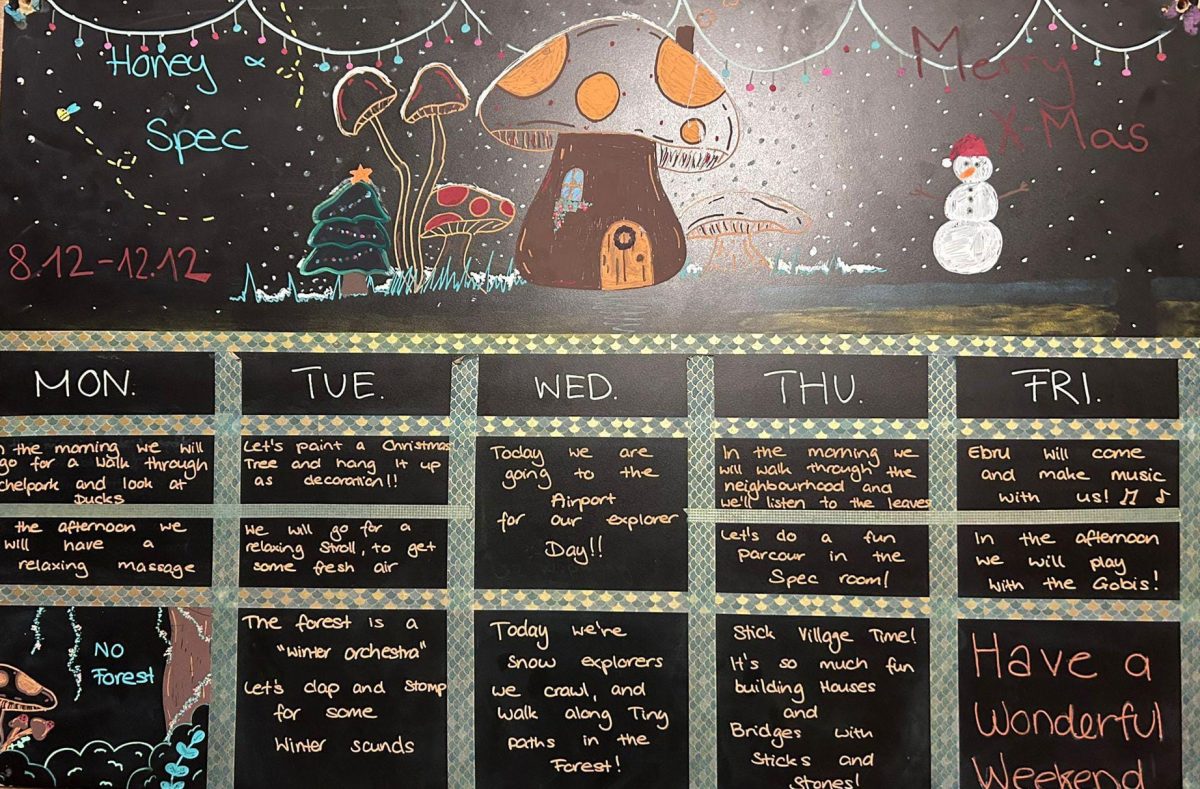 Honey &
Spec
8.12-12.12
Merry
X-Mas
MON.
TUE.
WED.
THU.
FRI.
the morning we will
go for a walk through
chelpark and look at
Ducks
the afternoon we
will have a
relaxing massage
No
Forest
Let's paint a Christmas
Tree and hang it up
as decoration!!
We will go for a
relaxing stroll, to get
some fresh air
The forest is a
"Winter orchestra"
Let's clap and Stomp
for some
Winter sounds
Today we are
going to the
Airport
for our explorer
Day!!
Today we're
Snow explorers
we crawl, and
walk along Tiny
paths in the
Forest!
In the morning we
will walk through the
neighbourhood and
we'll listen to the leaves
Let's do a fun
parcour in the
Spec room!
Stick Village Time!
It's so much fun
building Houses
and
Bridges with
Sticks and
Stones!
Ebru will come
and make music
with us!
In the afternoon
we will play
with the Gobis!
Have a
Wonderful
Weekend